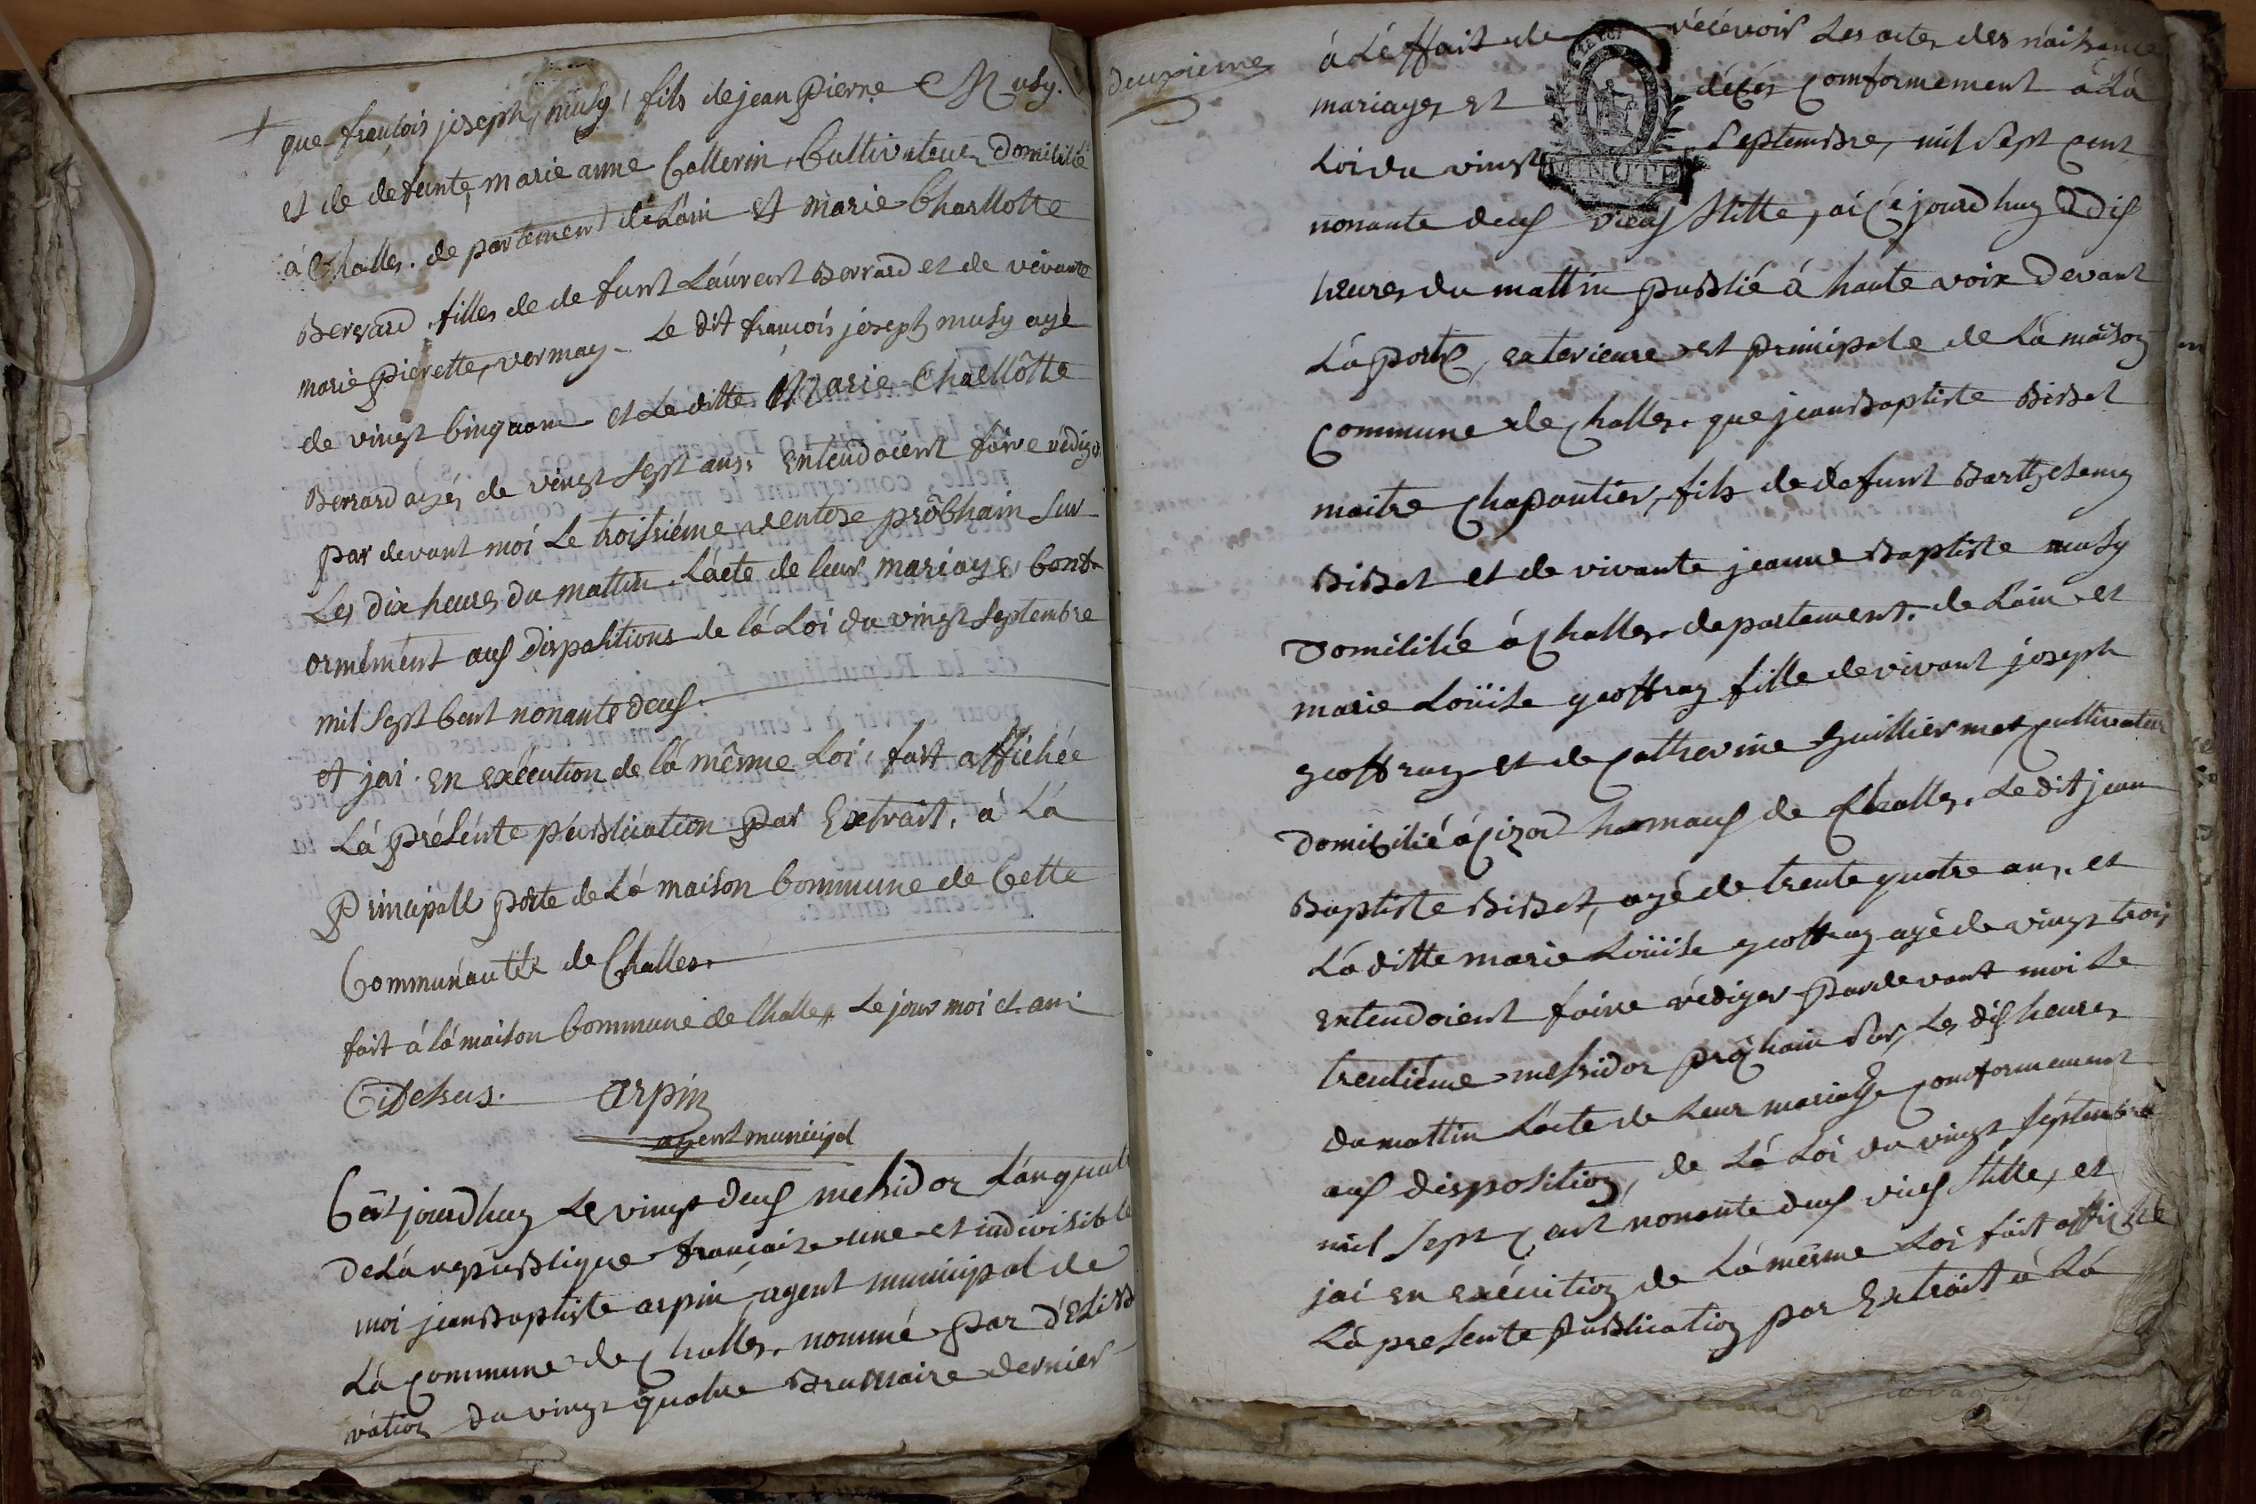 que françois joseph, musy, fils de jean pierre Musy.
et de defunte, marie anne Collerin, Cultivateur Domicilié
à Challes. departement de Lain et marie Charllotte
Berrard, filles de defunt Laurent Berrard et de vivante
marie pierette, vermay - Le dit françois joseph musy agé
de vingt cinq ans et Laditte Marie Charllôtte
Berrard agés de vingt sept ans, entendoient faire rédiger
par devant moi Le troisiéme ventose prôchain sur
Les dix heures du mattin L'acte de leur mariage conf-
ormément aus dispositions de lá Loi du vingt septembre
mil sept cent nonante deus.
et jai en exécution de lá même Loi, fait affichée
Lá présente publication par Extrait, à Lá
Principall porte de Lá maison Commune de Cette
Communauttée de Challes.
fait à lá maison Commune de Challes Le jour moi et an
Cidesus. arpin
agent municipal
Cejourdhuy Le vingt deus mesidor Lanquatr
De Lá republique française une et indivisible
moi jean Baptiste arpin, agent municipal de
Lá Commune de Challes, nommé par délibé
ration du vingt quatre Brumaire dernier
deuxieme
à Léffait de récévoir Les actes des naisance
mariages et décés comformement à Lá
Loi du vingt septembre, mil sept cent
nonante deus vieus stille, ai cé jourdhuy à dis
heures du mattin publié á haute voix devant
Lá porte, exterieure et principale de Lá maison
Commune de Challes. que jean Baptiste Bisset
maitre Chapantier, fils de défunt Barthelemy
Bisset et de vivante jeanne Baptiste musy
Domicilié á Challes departement de Lain et
marie Loüise geoffray fille de vivant joseph
geoffray et de Catherine Guilliermet cultivateur
Domicilié á Cizod hamaus de Challes, Ledit jean
Baptiste Bisset, agé de trente quatre ans. et
Lá ditte marie Loüise geoffray agé de vingt trois
entendoient faire rédiger par devant moi Le
trentiéme mesidor prochain sur, Les dis heures
du mattin Lácte de Leur mariage comformement
aus disposition, de Lá Loi du vingt séptembre
mil sept cent nonante deus vieus stille, et
jai en exécution de Lá mésme Loi fait affiche
Lá presente publication par Extrait á Lá
LA LOI
MINUTE